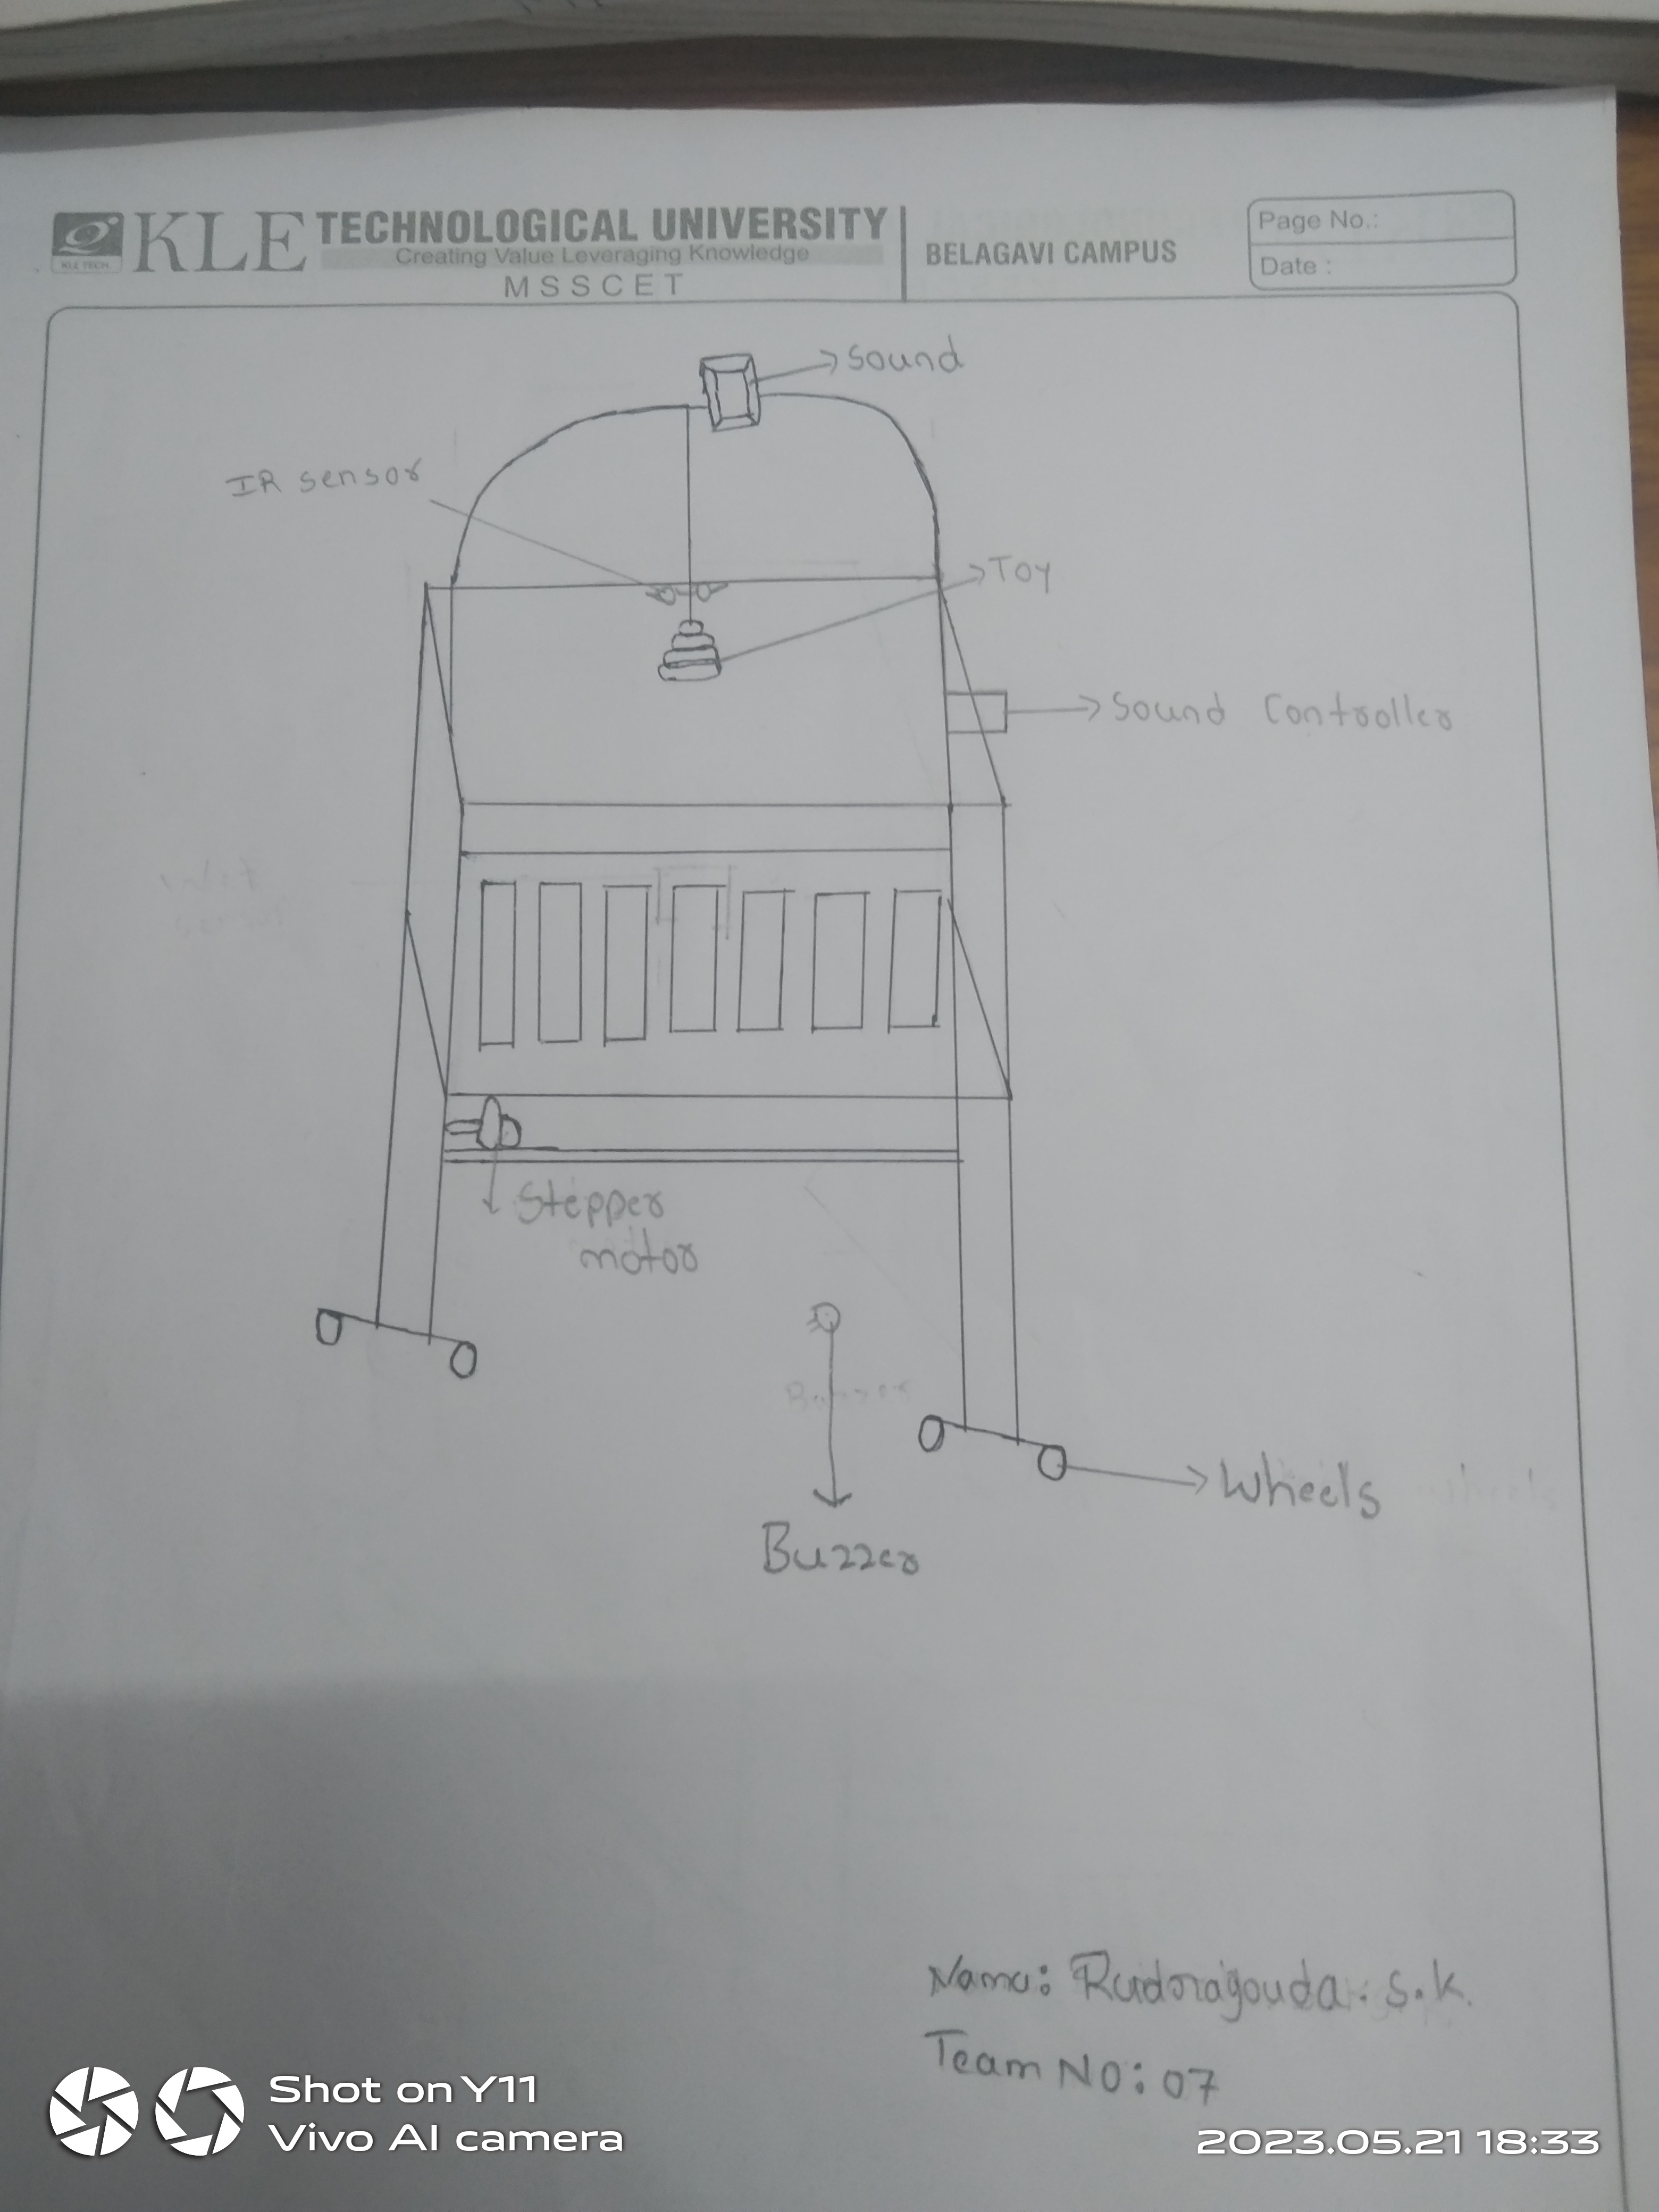 KLE TECHNOLOGICAL UNIVERSITY
Creating Value Leveraging Knowledge
MSSCET
BELAGAVI CAMPUS
Page No.:
Date :
KLE TECH
Sound
IR sensor
Toy
Sound Controller
Stepper
motor
Wheels
Buzzer
Name: Rudragouda. S.K.
Team NO: 07
Shot on Y11
Vivo AI camera
2023.05.21 18:33